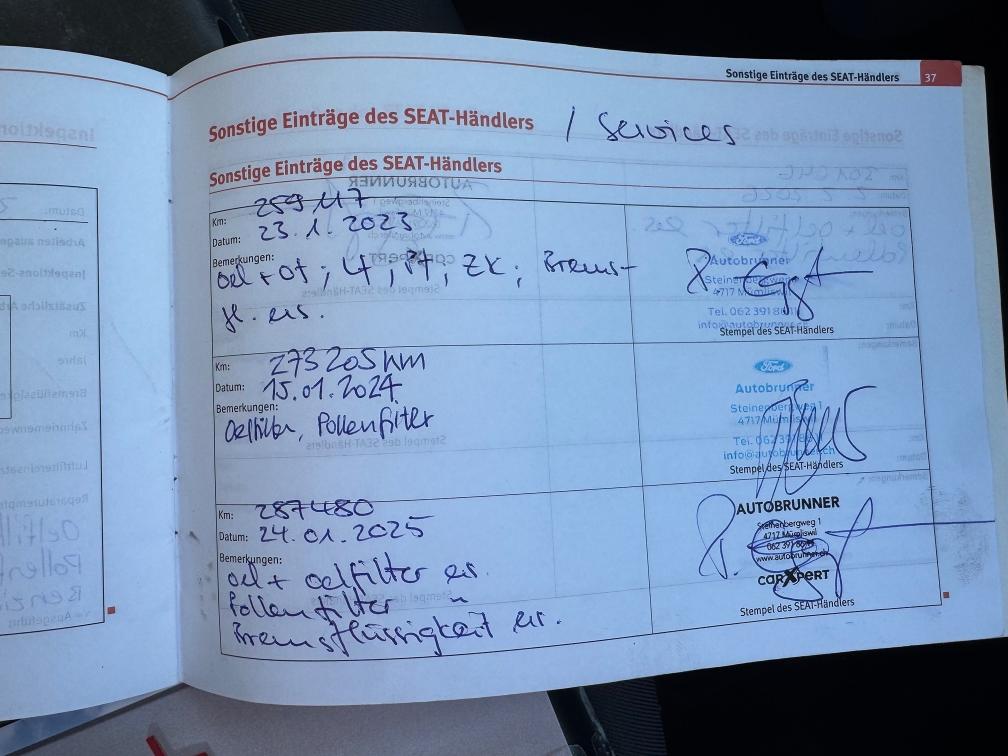 Sonstige Einträge des SEAT-Händlers 37
Sonstige Einträge des SEAT-Händlers / Services
Sonstige Einträge des SEAT-Händlers
Km: 259 117
Datum: 23.1.2023
Bemerkungen:
Oel + Of; Lf, Pf, ZK; Brems-
fl. ers.
Ford
Autobrunner
Steinenbergweg 1
4717 Mümliswil
Tel. 062 391 86 11
info@autobrunner.ch
Stempel des SEAT-Händlers
Km: 273 205 km
Datum: 15.01.2024
Bemerkungen:
Oelfilter, Pollenfilter
Ford
Autobrunner
Steinenbergweg 1
4717 Mümliswil
Tel. 062 391 86 11
info@autobrunner.ch
Stempel des SEAT-Händlers
Km: 287480
Datum: 24.01.2025
Bemerkungen:
Oel + Oelfilter ers.
Pollenfilter "
Bremsflüssigkeit ers.
AUTOBRUNNER
Steinenbergweg 1
4717 Mümliswil
062 391 86 11
www.autobrunner.ch
carXpert
Stempel des SEAT-Händlers